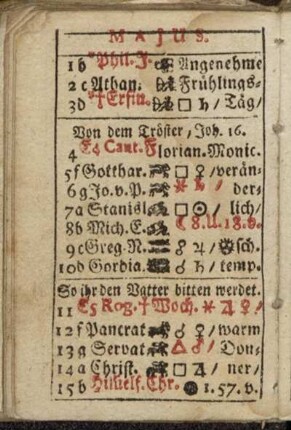 MAJUS.
1 b Phil. J. Angenehme
2 c Athan. Frühlings-
3 d † Erfin. □ ♄ / Täg/
Von dem Tröster, Joh. 16.
4 E4 Cant. Florian. Monic.
5 f Gotthar. □ ♀ / verän-
6 g Jo. v. P. ⚹ ♄ / der-
7 a Stanisl. □ ☉ / lich/
8 b Mich. E. ☾ 8. U. 18. v.
9 c Greg. N. ☌ ♃ / sch.
10 d Gordia. ☌ ♄ / temp.
So ihr den Vatter bitten werdet.
11 E5 Rog. † Woch. ⚹ ♃ ♀ /
12 f Pancrat ☌ ♀ / warm
13 g Servat △ ♂ / Don-
14 a Christ. □ ♃ / ner/
15 b Himelf. Chr. ● 1. 57. v.